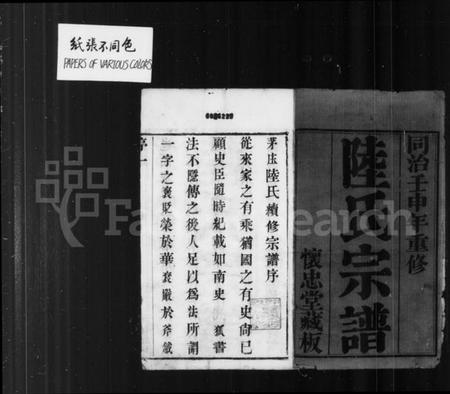 紙張不同色
PAPERS OF VARIOUS COLORS
同治壬申年重修
陸氏宗譜
懷忠堂藏板
茅庒陸氏續修宗譜序
從來家之有乘猶國之有史尙已
顧史臣隨時紀載如南史 狐書
法不隱傳之後人足以爲法所謂
一字之褒貶榮於華袞嚴於斧鉞
序一
FamilySearch